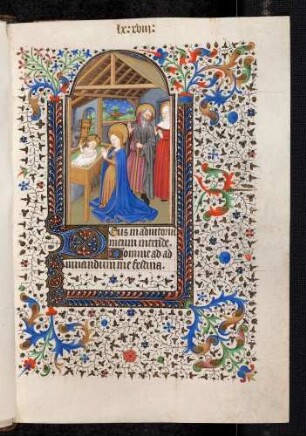 lxxviii
Deus in adiutoriu
meum intende.
Domine ad ad
iuuandum me festina.